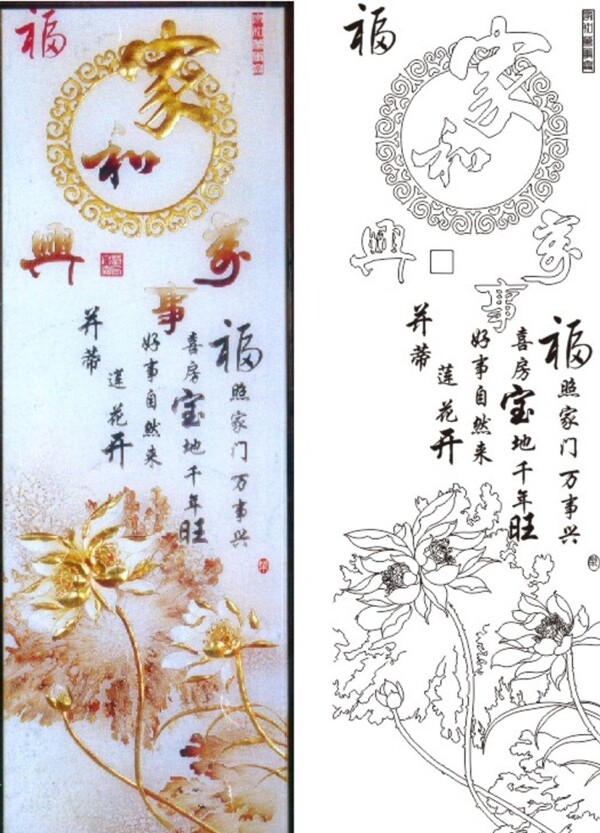 福
家
和
萬
事
興
福照家门万事兴
喜房宝地千年旺
好事自然来
并蒂
莲花开
福
家
和
萬
事
興
福照家门万事兴
喜房宝地千年旺
好事自然来
并蒂
莲花开